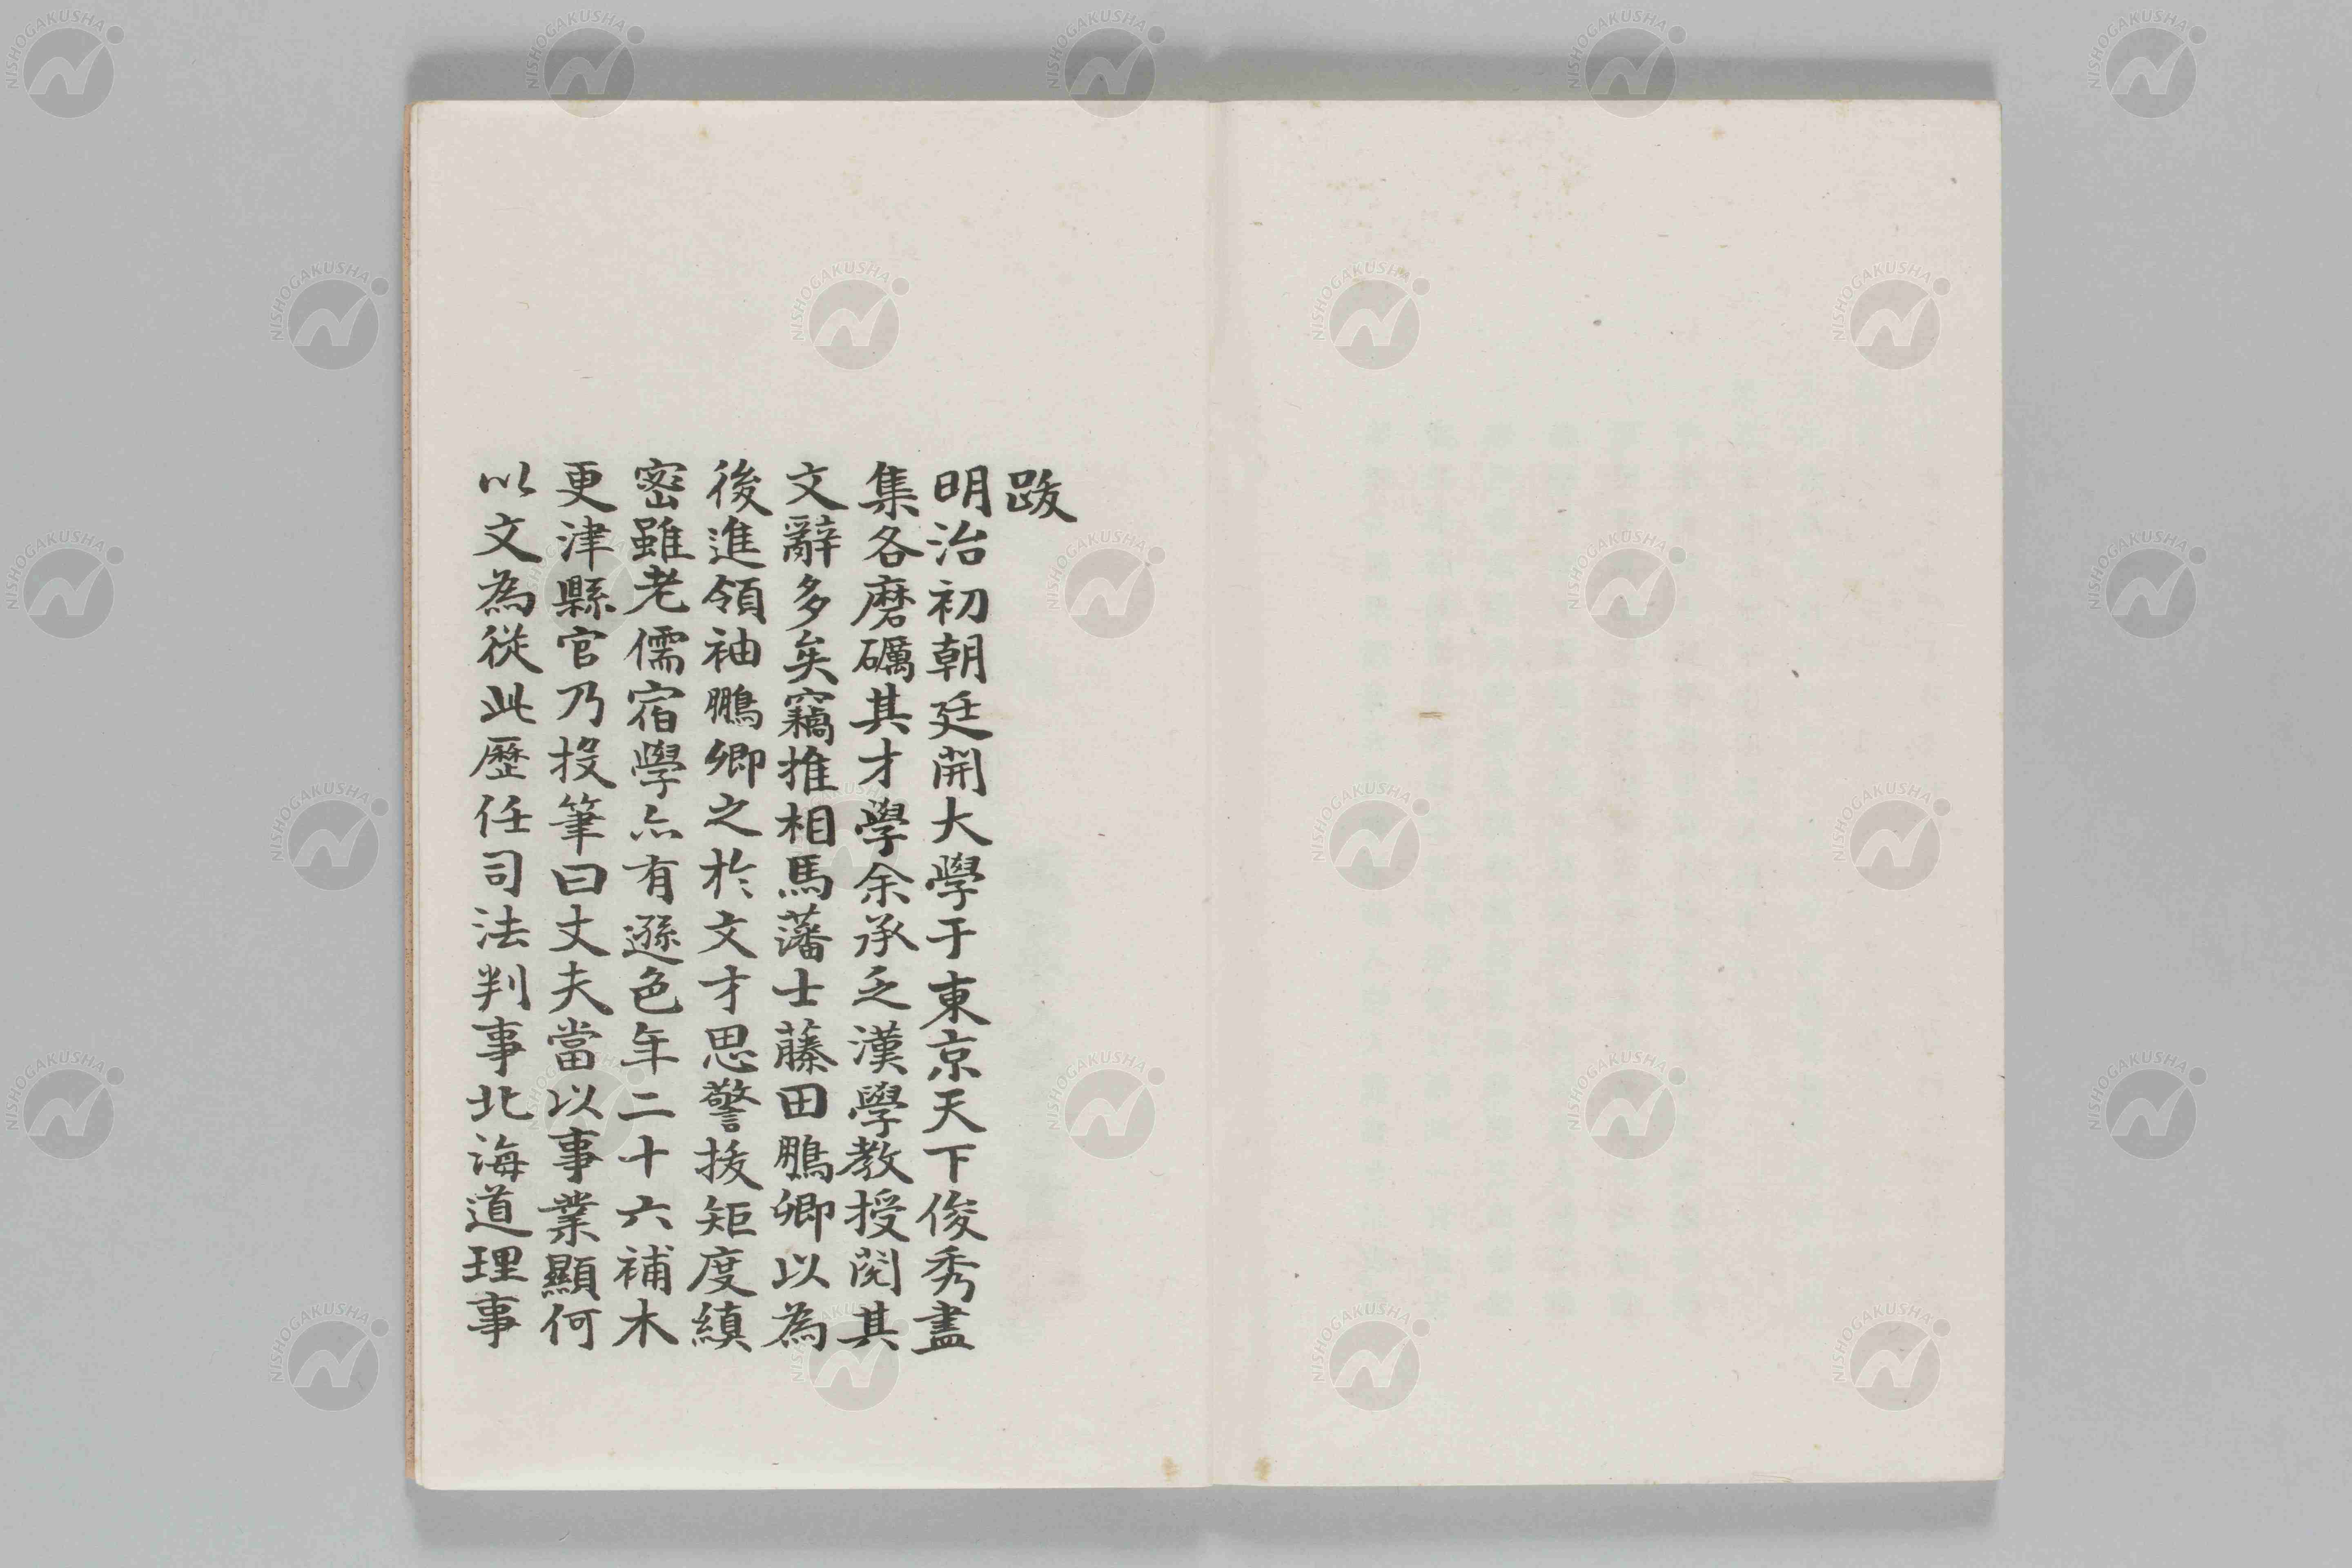 跋
明治初朝廷開大學于東京天下俊秀盡
集各磨礪其才學余承乏漢學教授閱其
文辭多矣竊推相馬藩士藤田鵬卿以為
後進領袖鵬卿之於文才思警拔矩度縝
密雖老儒宿學亦有遜色年二十六補木
更津縣官乃投筆曰丈夫當以事業顯何
以文為從此歷任司法判事北海道理事
NISHOGAKUSHA